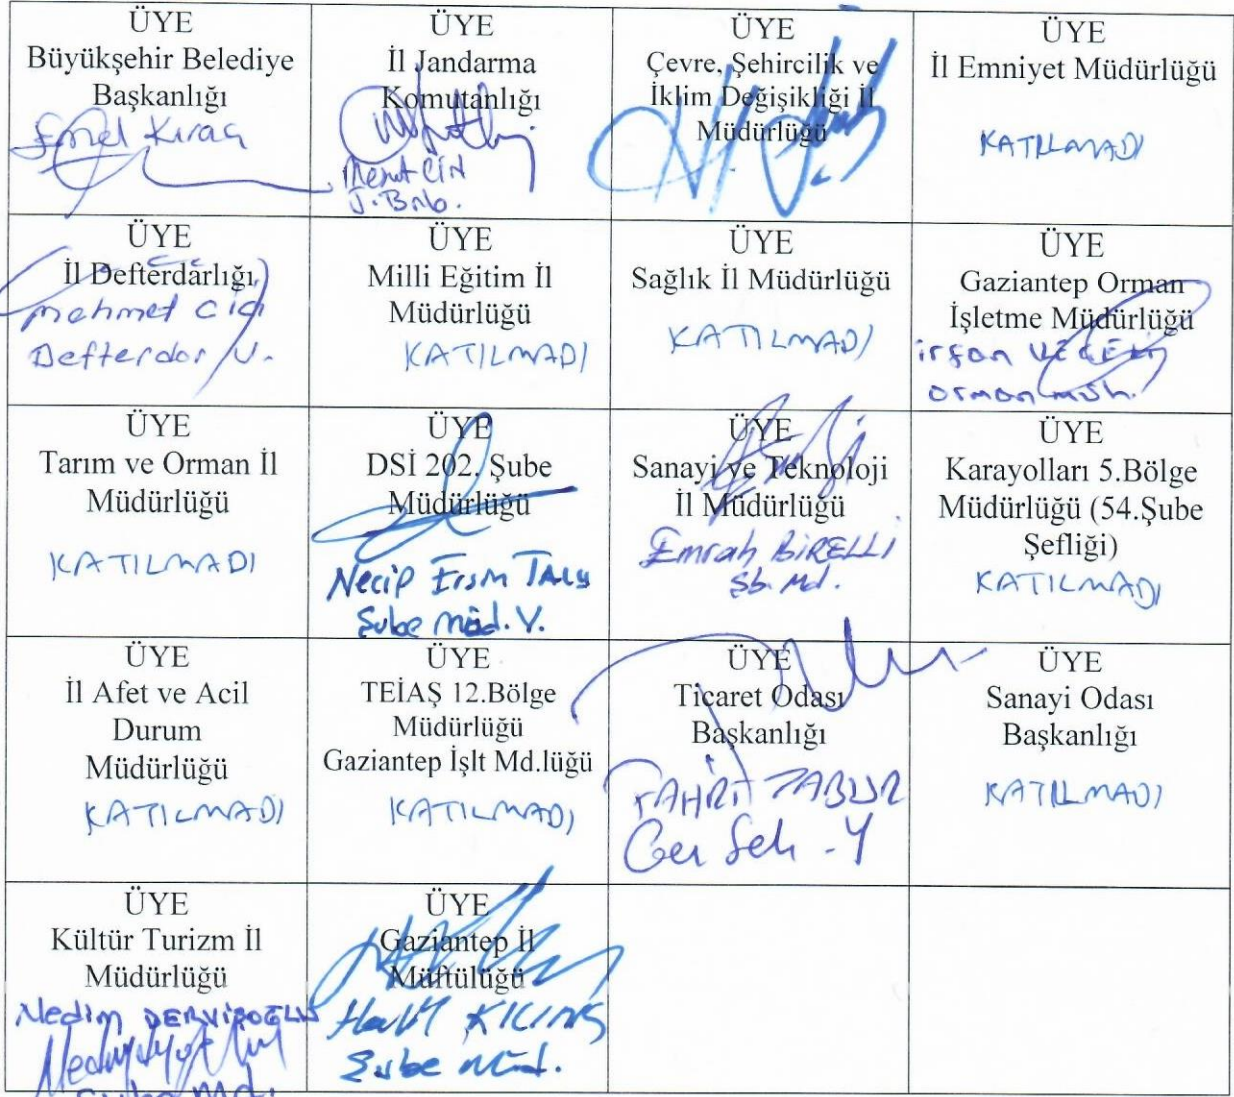 ÜYE
Büyükşehir Belediye
Başkanlığı
Kıraç
ÜYE
İl Jandarma
Komutanlığı
J. Bnb.
ÜYE
Çevre, Şehircilik ve
İklim Değişikliği İl
Müdürlüğü
ÜYE
İl Emniyet Müdürlüğü
KATILMADI
ÜYE
İl Defterdarlığı
Mehmet Cici
Defterdar V.
ÜYE
Milli Eğitim İl
Müdürlüğü
KATILMADI
ÜYE
Sağlık İl Müdürlüğü
KATILMADI
ÜYE
Gaziantep Orman
İşletme Müdürlüğü
irfan
orman müh.
ÜYE
Tarım ve Orman İl
Müdürlüğü
KATILMADI
ÜYE
DSİ 202. Şube
Müdürlüğü
Necip
Şube Müd. V.
ÜYE
Sanayi ve Teknoloji
İl Müdürlüğü
Emrah BİRELLİ
Şb. Md.
ÜYE
Karayolları 5.Bölge
Müdürlüğü (54.Şube
Şefliği)
KATILMADI
ÜYE
İl Afet ve Acil
Durum
Müdürlüğü
KATILMADI
ÜYE
TEİAŞ 12.Bölge
Müdürlüğü
Gaziantep İşlt Md.lüğü
KATILMADI
ÜYE
Ticaret Odası
Başkanlığı
Gen Sek. Y
ÜYE
Sanayi Odası
Başkanlığı
KATILMADI
ÜYE
Kültür Turizm İl
Müdürlüğü
Nedim DERVİŞOĞLU
Şube Md.
ÜYE
Gaziantep İl
Müftülüğü
Halil KILINÇ
Şube Müd.